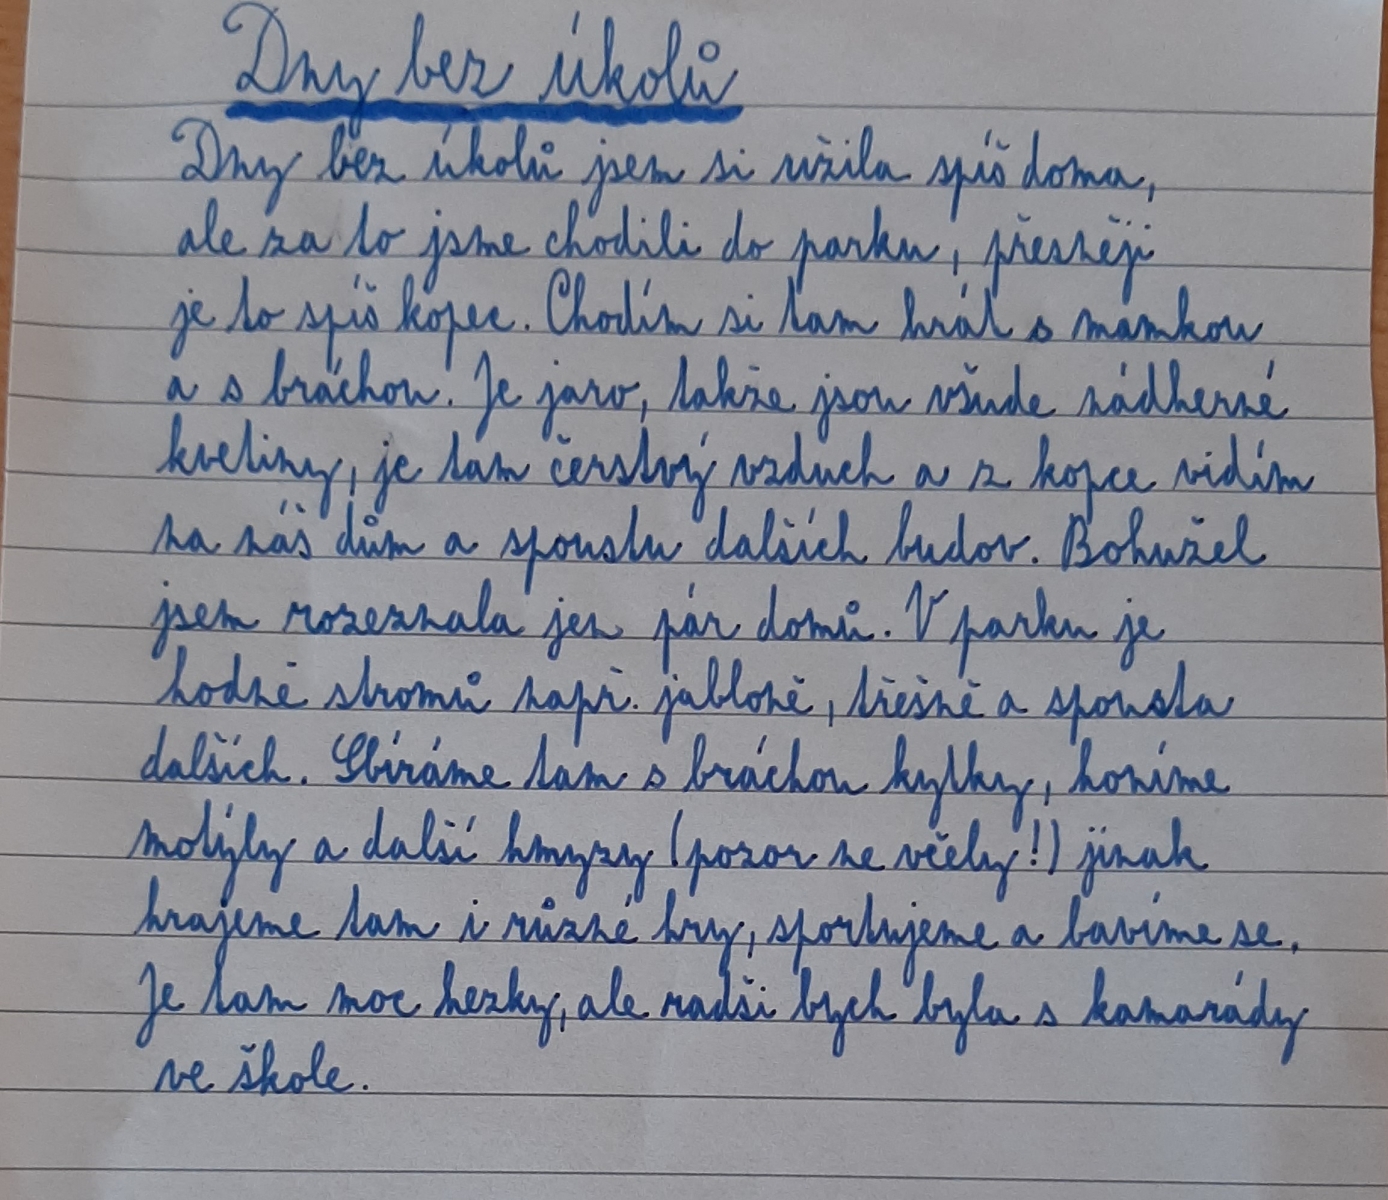 Dny bez úkolů
Dny bez úkolů jsem si užila spíš doma,
ale za to jsme chodili do parku, přesněji
je to spíš kopec. Chodím si tam hrát s mamkou
a s bráchou. Je jaro, takže jsou všude nádherné
kvetiny, je tam čerstvý vzduch a z kopce vidím
na náš dům a spoustu dalších budov. Bohužel
jsem rozeznala jen pár domů. V parku je
hodně stromů např. jabloně, třešně a spousta
dalších. Sbíráme tam s bráchou kytky, honíme
motýly a další hmyzy (pozor ne včely!) jinak
hrajeme tam i různé hry, sportujeme a bavíme se.
Je tam moc hezky, ale radši bych byla s kamarády
ve škole.